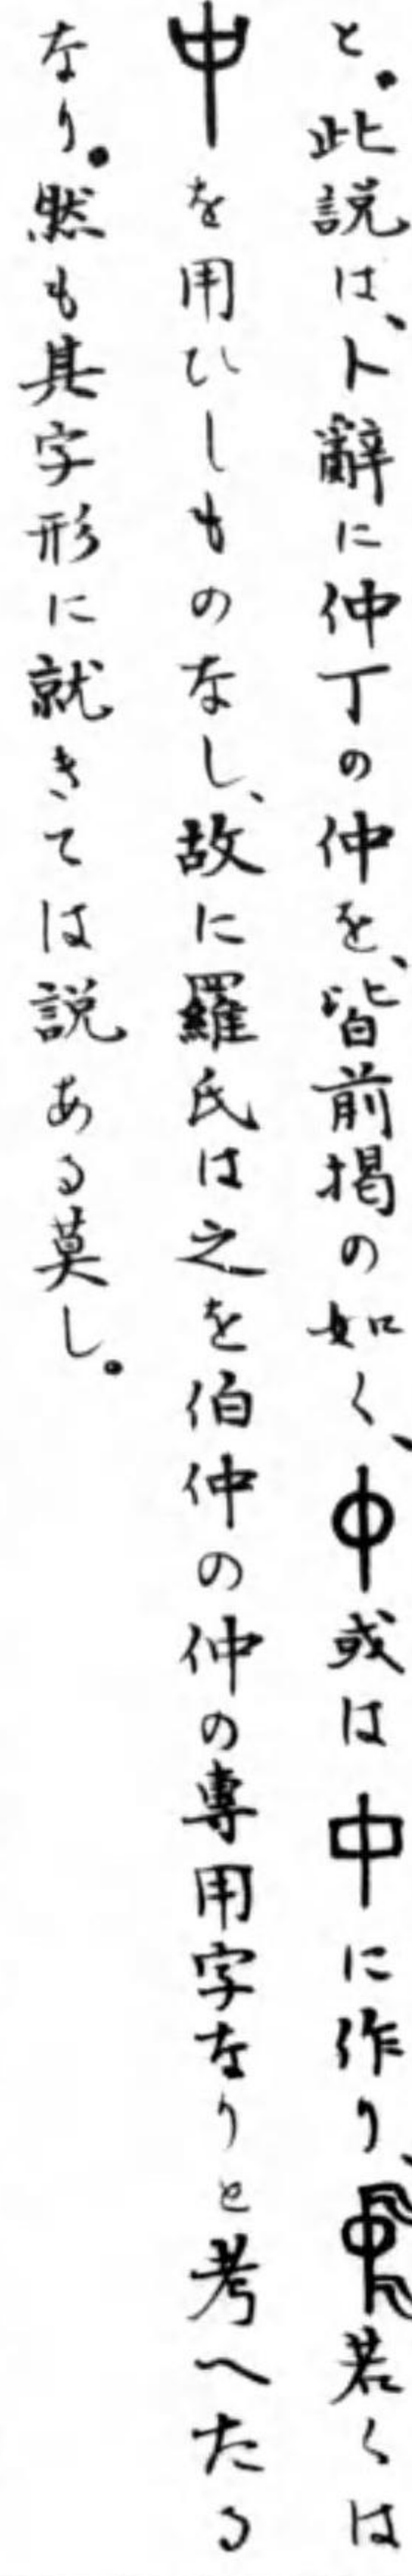 と。此説は、卜辭に仲丁の仲を、皆前掲の如く、或は中に作り、若くは
を用ひしものなし、故に羅氏は之を伯仲の仲の専用字なりと考へたる
なり。然も其字形に就きては説ある莫し。